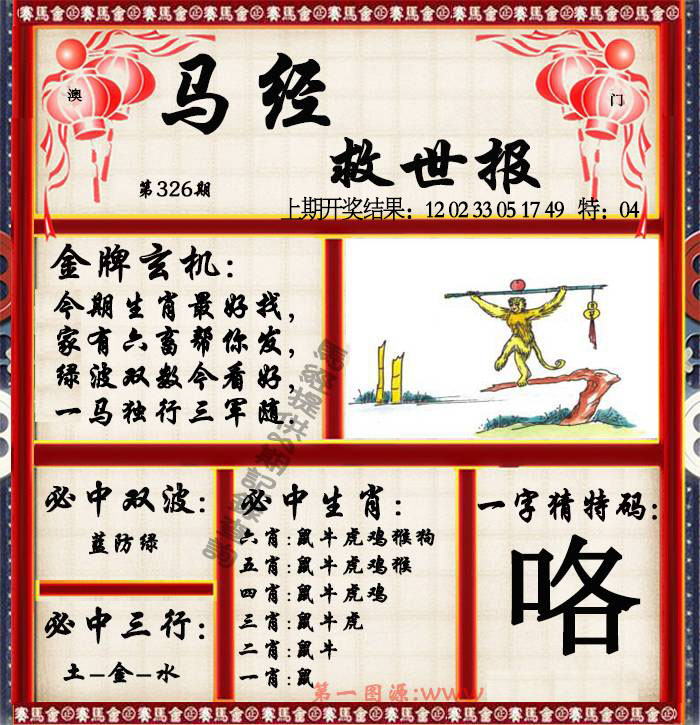 澳
门
马经
救世报
第326期
上期开奖结果：12 02 33 05 17 49 特：04
金牌玄机：
今期生肖最好找，
家有六畜帮你发，
绿波双数今看好，
一马独行三军随.
必中双波：
蓝防绿
必中三行：
土-金-水
必中生肖：
六肖：鼠牛虎鸡猴狗
五肖：鼠牛虎鸡猴
四肖：鼠牛虎鸡
三肖：鼠牛虎
二肖：鼠牛
一肖：鼠
一字猜特码：
咯
第一图源:www